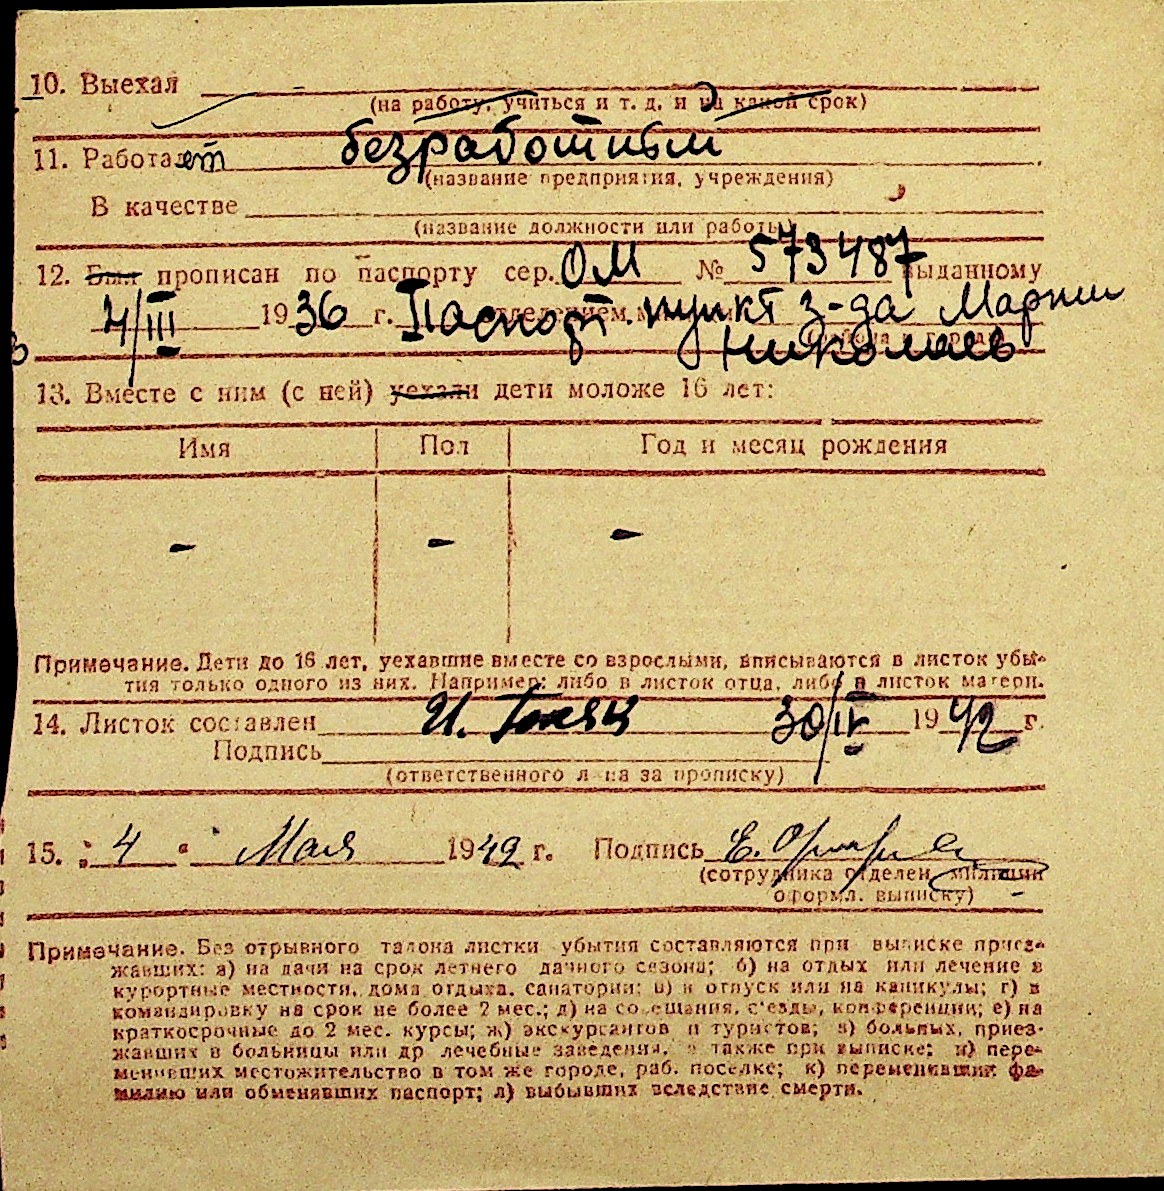 10. Выехал
(на работу, учиться и т. д. и на какой срок)
11. Работает безработный
(название предприятия, учреждения)
В качестве
(название должности или работы)
12. Был прописан по паспорту сер. ОМ № 573487 выданному
4/III 1936 г. Паспорт. пункт з-да Марти
Николаев
13. Вместе с ним (с ней) уехали дети моложе 16 лет:
Имя Пол Год и месяц рождения
– – –
Примечание. Дети до 16 лет, уехавшие вместе со взрослыми, вписываются в листок убы-
тия только одного из них. Например: либо в листок отца, либо в листок матери.
14. Листок составлен И. 30/IV 1942 г.
Подпись
(ответственного лица за прописку)
15. „ 4 “ Мая 1942 г. Подпись Е.
(сотрудника отделен. милиции
оформл. выписку)
Примечание. Без отрывного талона листки убытия составляются при выписке приез-
жавших: а) на дачи на срок летнего дачного сезона; б) на отдых или лечение в
курортные местности, дома отдыха, санатории; в) в отпуск или на каникулы; г) в
командировку на срок не более 2 мес.; д) на совещания, с'езды, конференции; е) на
краткосрочные до 2 мес. курсы; ж) экскурсантов и туристов; з) больных, приез-
жавших в больницы или др лечебные заведения, а также при выписке; и) пере-
менивших местожительство в том же городе, раб. поселке; к) переменивших фа-
милию или обменявших паспорт; л) выбывших вследствие смерти.